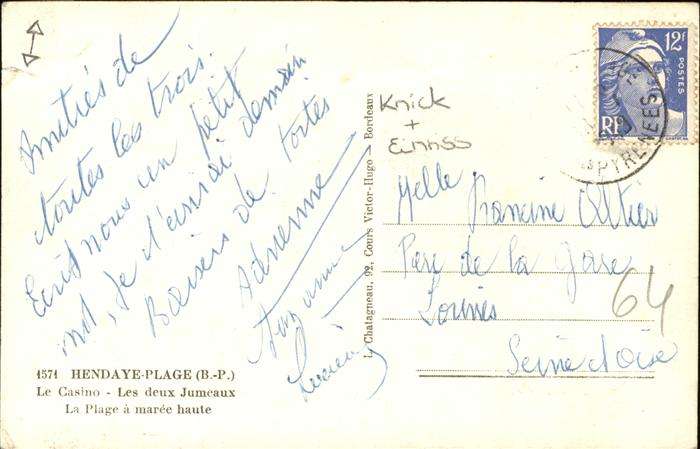 Amitiés de
toutes les trois.
Ecris nous un petit
mot, je t'écrirai demain
Baisers de toutes
Adrienne
Suzanne
Lucien
1571 HENDAYE-PLAGE (B.-P.)
Le Casino - Les deux Jumeaux
La Plage à marée haute
L. Chatagneau, 92, Cours Victor-Hugo - Bordeaux
Knick
+
12F
POSTES
RF
PYRENEES
Melle Francine
de la Gare
64
Seine et Oise